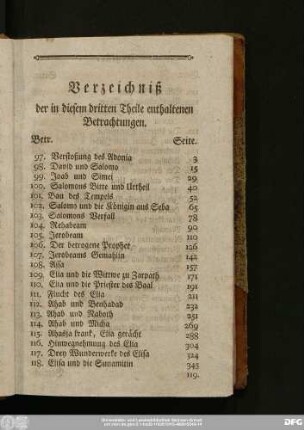 Verzeichniß
der in diesem dritten Theile enthaltenen
Betrachtungen.
Betr. Seite.
97. Verstoßung des Adonia 3
98. David und Salomo 15
99. Joab und Simei 29
100. Salomons Bitte und Urtheil 40
101. Bau des Tempels 52
102. Salomo und die Königin aus Seba 65
103. Salomons Verfall 78
104. Rehabeam 90
105. Jerobeam 110
106. Der betrogene Prophet 126
107. Jerobeams Gemahlin 142
108. Assa 157
109. Elia und die Wittwe zu Zarpath 171
110. Elia und die Priester des Baal 191
111. Flucht des Elia 211
112. Ahab und Benhadad 232
113. Ahab und Naboth 251
114. Ahab und Micha 269
115. Ahasja krank, Elia gerächt 288
116. Hinwegnehmung des Elia 304
117. Drey Wunderwerke des Elisa 324
118. Elisa und die Sunamitin 343
119.